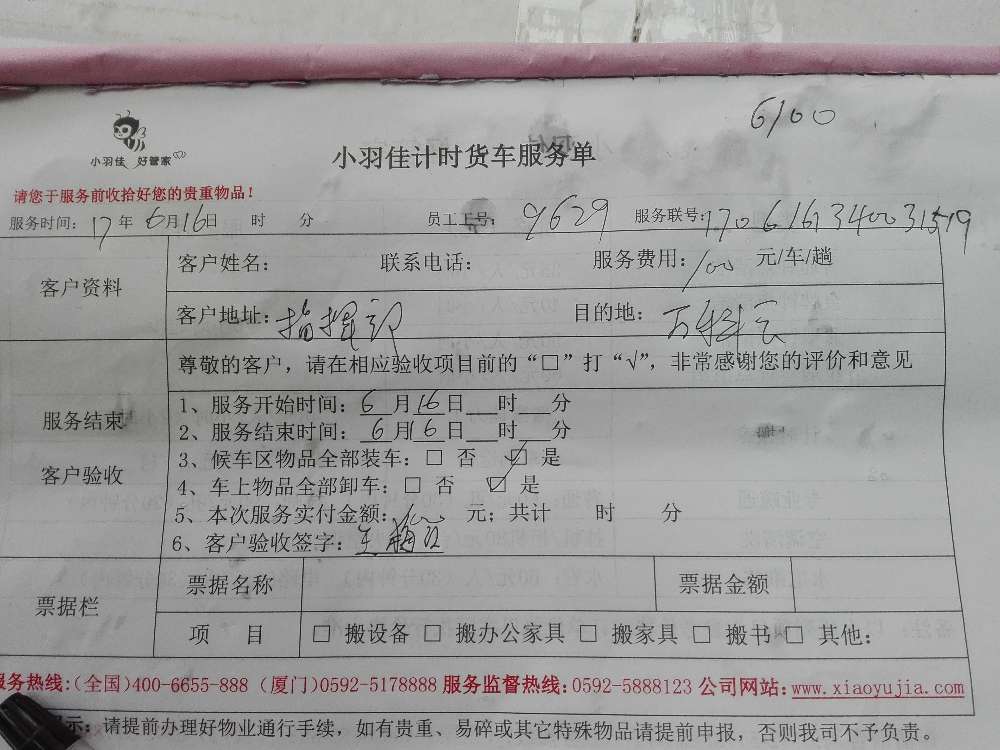 6100
小羽佳 好管家
小羽佳计时货车服务单
请您于服务前收拾好您的贵重物品！
服务时间：17年6月16日 时 分 员工工号：9629 服务联号：1706161340031519
客户资料
客户姓名： 联系电话： 服务费用：100 元/车/趟
客户地址：指挥部 目的地：万科云
尊敬的客户，请在相应验收项目前的“□”打“√”，非常感谢您的评价和意见
服务结束
客户验收
1、服务开始时间：6月16日___时___分
2、服务结束时间：6月16日___时___分
3、候车区物品全部装车：□ 否 ☑ 是
4、车上物品全部卸车：□ 否 ☑ 是
5、本次服务实付金额：100 元；共计 时 分
6、客户验收签字：王
票据栏
票据名称 票据金额
项 目 □ 搬设备 □ 搬办公家具 □ 搬家具 □ 搬书 □ 其他：
服务热线:(全国)400-6655-888 (厦门)0592-5178888 服务监督热线:0592-5888123 公司网站：www.xiaoyujia.com
示：请提前办理好物业通行手续，如有贵重、易碎或其它特殊物品请提前申报，否则我司不予负责。